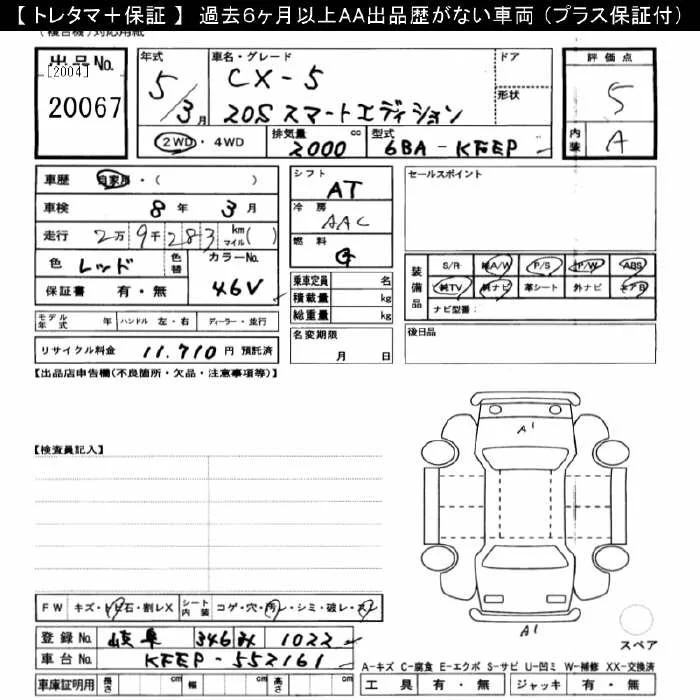 【 トレタマ＋保証 】 過去6ヶ月以上AA出品歴がない車両（プラス保証付）
(複合機)対応用紙
出品No.
[2004]
20067
年式
5/3月
車名・グレード
CX-5
20S スマートエディション
ドア
形状
評価点
5
内装
A
2WD・4WD
排気量
2000
cc
型式
6BA-KFEP
車歴
自家用・(　)
車検
8年 3月
走行
2万 9千 283 km マイル( )
色
レッド
色替
カラーNo.
46V
保証書
有・無
モデル年式
年
ハンドル 左・右
ディーラー・並行
リサイクル料金
11,710 円 預託済
シフト
AT
冷房
AAC
燃料
G
乗車定員 名
積載量 kg
総重量 kg
名変期限
月 日
セールスポイント
装備品
S/R 純A/W P/S P/W ABS
純TV 純ナビ 革シート 外ナビ エアB
ナビ型番：
後日品
【出品店申告欄(不良箇所・欠品・注意事項等)】
【検査員記入】
A1
A1
スペア
FW
キズ・トビ石・割レX
シート内装
コゲ・穴・汚レ・シミ・破レ・スレ
登録No.
岐阜 346 み 1022
車台No.
KFEP-552161
車庫証明用
長さ cm
幅 cm
高さ cm
A-キズ C-腐食 E-エクボ S-サビ U-凹ミ W-補修 XX-交換済
工具 有・無
ジャッキ 有・無